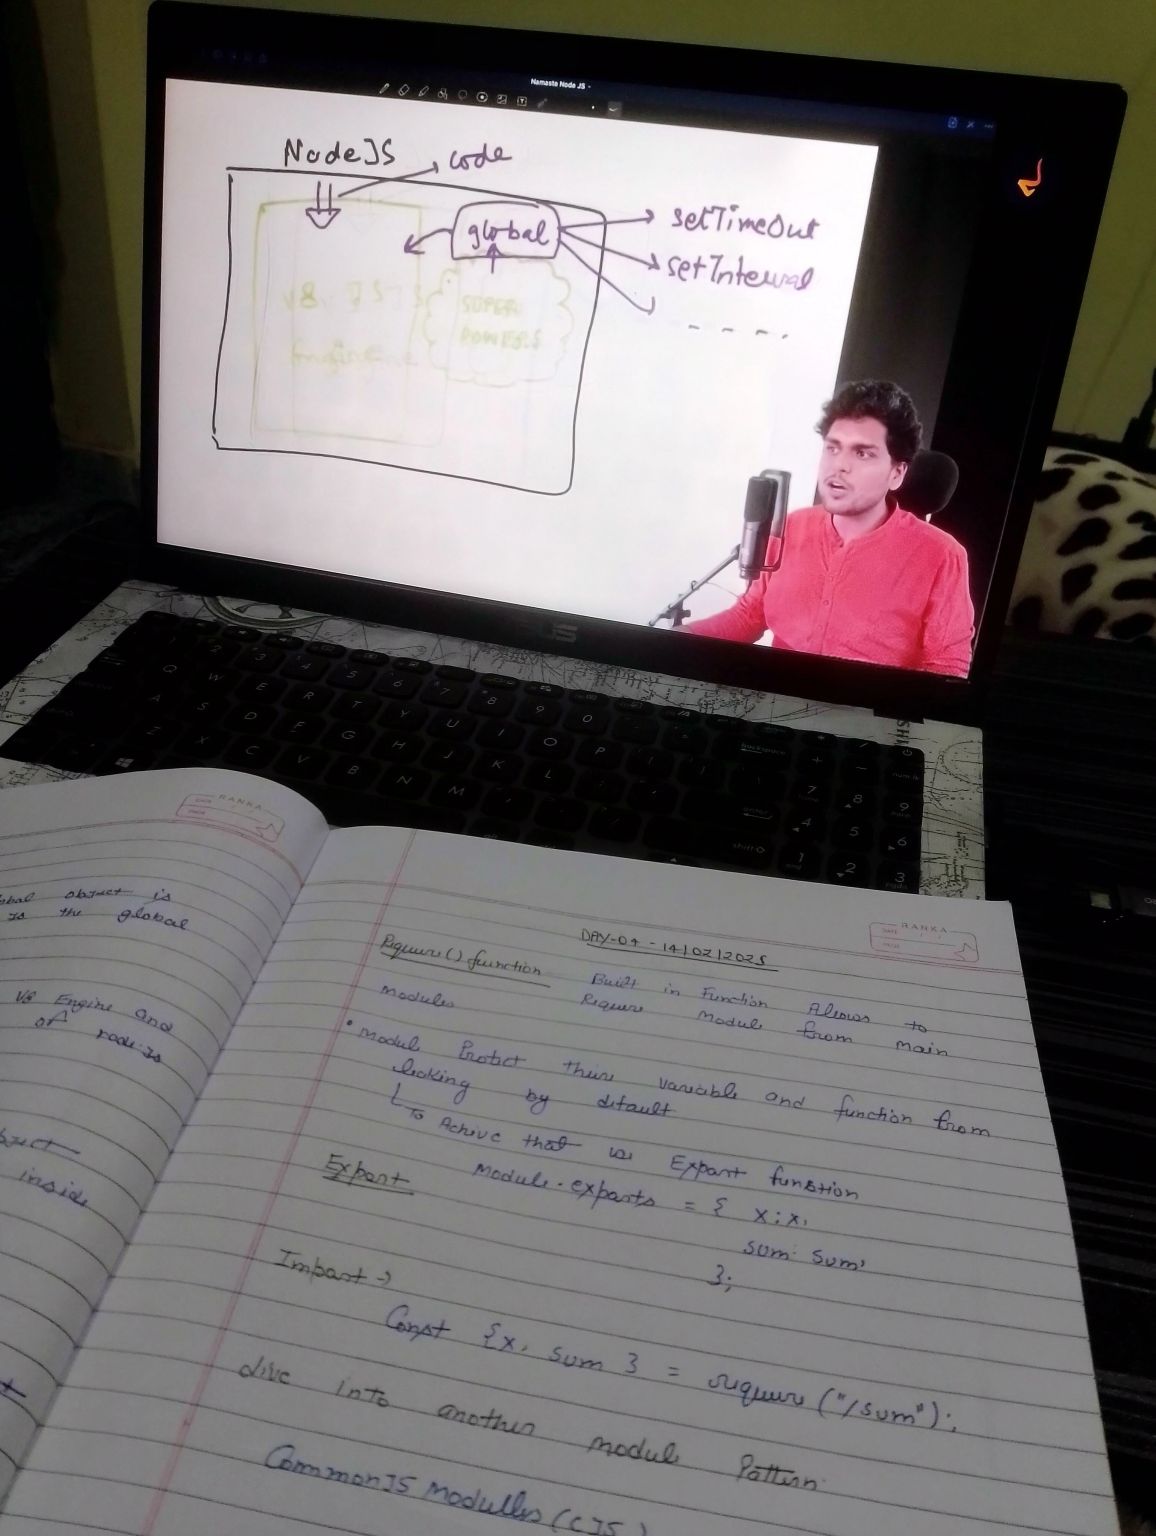 Namaste Node JS
NodeJS
code
global
setTimeOut
setInterval
- - - -
V8 JS
Engine
SUPER
POWERS
RANKA
DATE
PAGE
object is
the global
V8 Engine and
of node Js
inside
RANKA
DATE
PAGE
DAY-04 - 14/02/2025
Require() function
Built in Function Allows to
Require modul from main
modules
• modul Protect their variable and function from
leaking by default
To Achive that we Export function
Export
module.exports = { x:x,
sum: sum,
};
Import →
Const {x, sum } = require("/sum");
dive into another modul Pattern
CommonJS modulles (CJS)